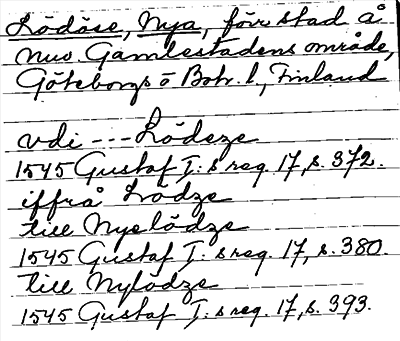 Lödöse, Nya, förr stad å
nuv. Gamlestadens område,
Göteborgs o Boh. l., Finland
vdi --- Lödeze
1545 Gustaf I:s reg. 17, s. 372.
iffrå Lödze
till Nyelödze
1545 Gustaf I:s reg. 17, s. 380.
till Nylödze
1545 Gustaf I:s reg. 17, s. 393.